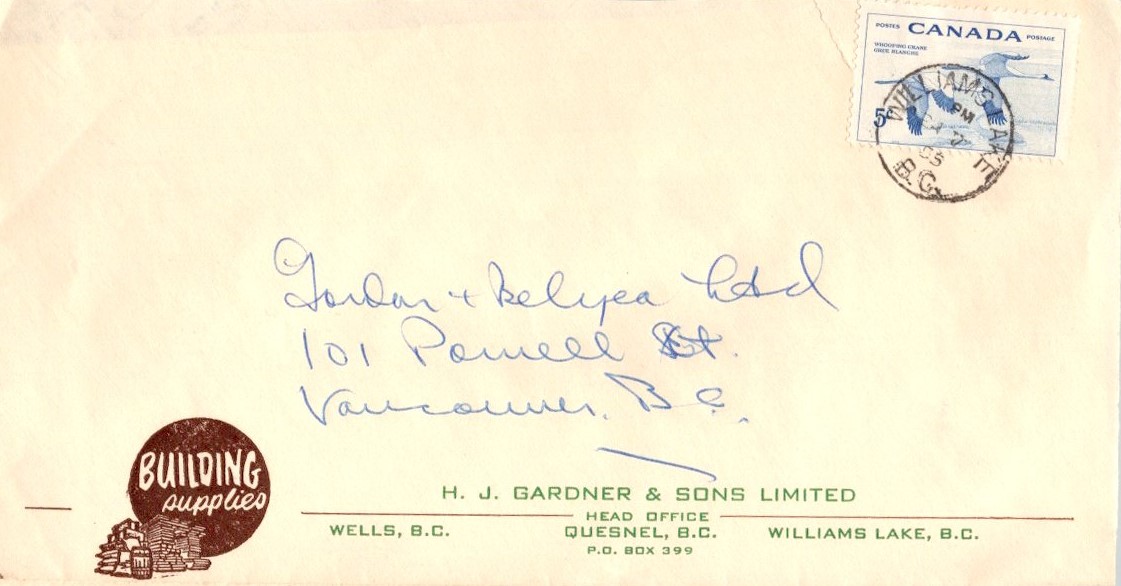 POSTES CANADA POSTAGE
WHOOPING CRANE
GRUE BLANCHE
5¢
WILLIAMS LAKE
PM
B.C.
Gordon + Belyea Ltd
101 Powell St.
Vancouver. B.C.
BUILDING
supplies
H. J. GARDNER & SONS LIMITED
HEAD OFFICE
WELLS, B.C. QUESNEL, B.C. WILLIAMS LAKE, B.C.
P.O. BOX 399